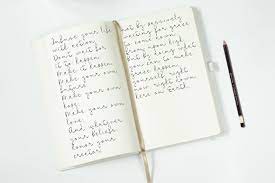 Infuse your life
with action.
Don't wait for
it to happen.
Make it happen.
Make your own
future.
Make your own
hope.
Make your own
love.
And whatever
your beliefs,
honor your
creator,
not by passively
waiting for grace
to come down
from upon high,
but by doing
what you can to
make grace
happen...
yourself, right
now, right down
here on Earth.